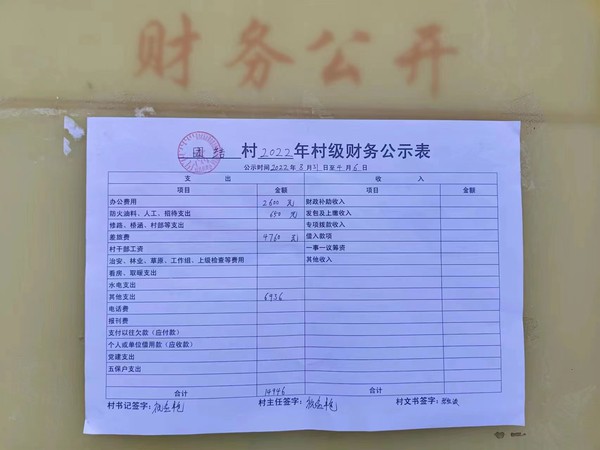 财务公开
团结 村 2022 年村级财务公示表
公示时间 2022 年 3 月 31 日至 4 月 6 日
支 出 收 入
项目 金额 项目 金额
办公费用 2600 元 财政补助收入
防火油料、人工、招待支出 650 元 发包及上缴收入
修路、桥涵、村部等支出 专项拨款收入
差旅费 4760 元 借入款项
村干部工资 一事一议筹资
治安、林业、草原、工作组、上级检查等费用 其他收入
看房、取暖支出
水电支出
其他支出 6936
电话费
报刊费
支付以往欠款（应付款）
个人或单位借用款（应收款）
党建支出
五保户支出
合计 14946 合计
村书记签字： 村主任签字： 村文书签字：